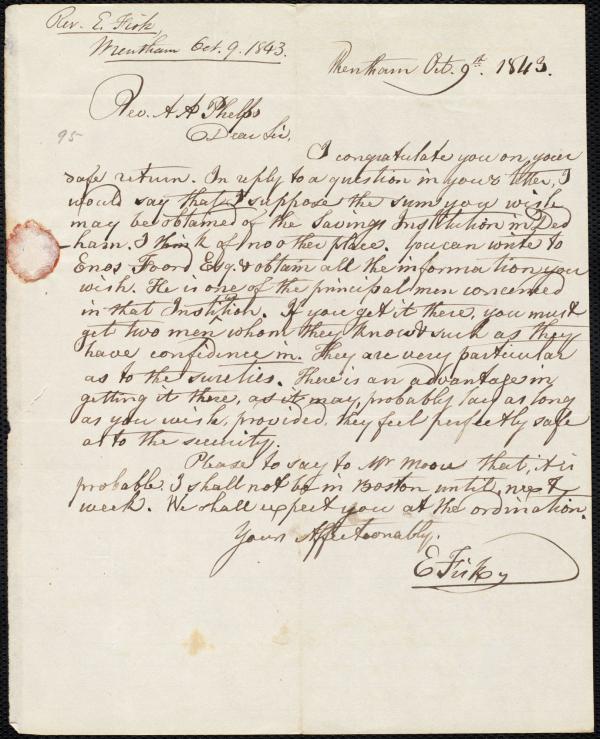 Rev. E. Fisk,
Wrentham Oct. 9. 1843.
Wrentham Oct. 9th. 1843.
Rev. A A Phelps
Dear Sir,
95
I congratulate you on your
safe return. In reply to a question in your letter, I
would say that I suppose the sum you wish
may be obtained of the Savings Institution in Ded
-ham. I think of no other place. You can write to
Enos Foord Esq. & obtain all the information you
wish. He is one of the principal men concerned
in that Instition. If you get it there, you must
get two men whom they know & such as they
have confidence in. They are very particular
as to the sureties. There is an advantage in
getting it there, as it may, probably lay as long
as you wish, provided, they feel perfectly safe
as to the security.
Please to say to Mr Moore that, it is
probable I shall not be in Boston until next
week. We shall expect you at the ordination.
Yours Affectionably.
E Fisk